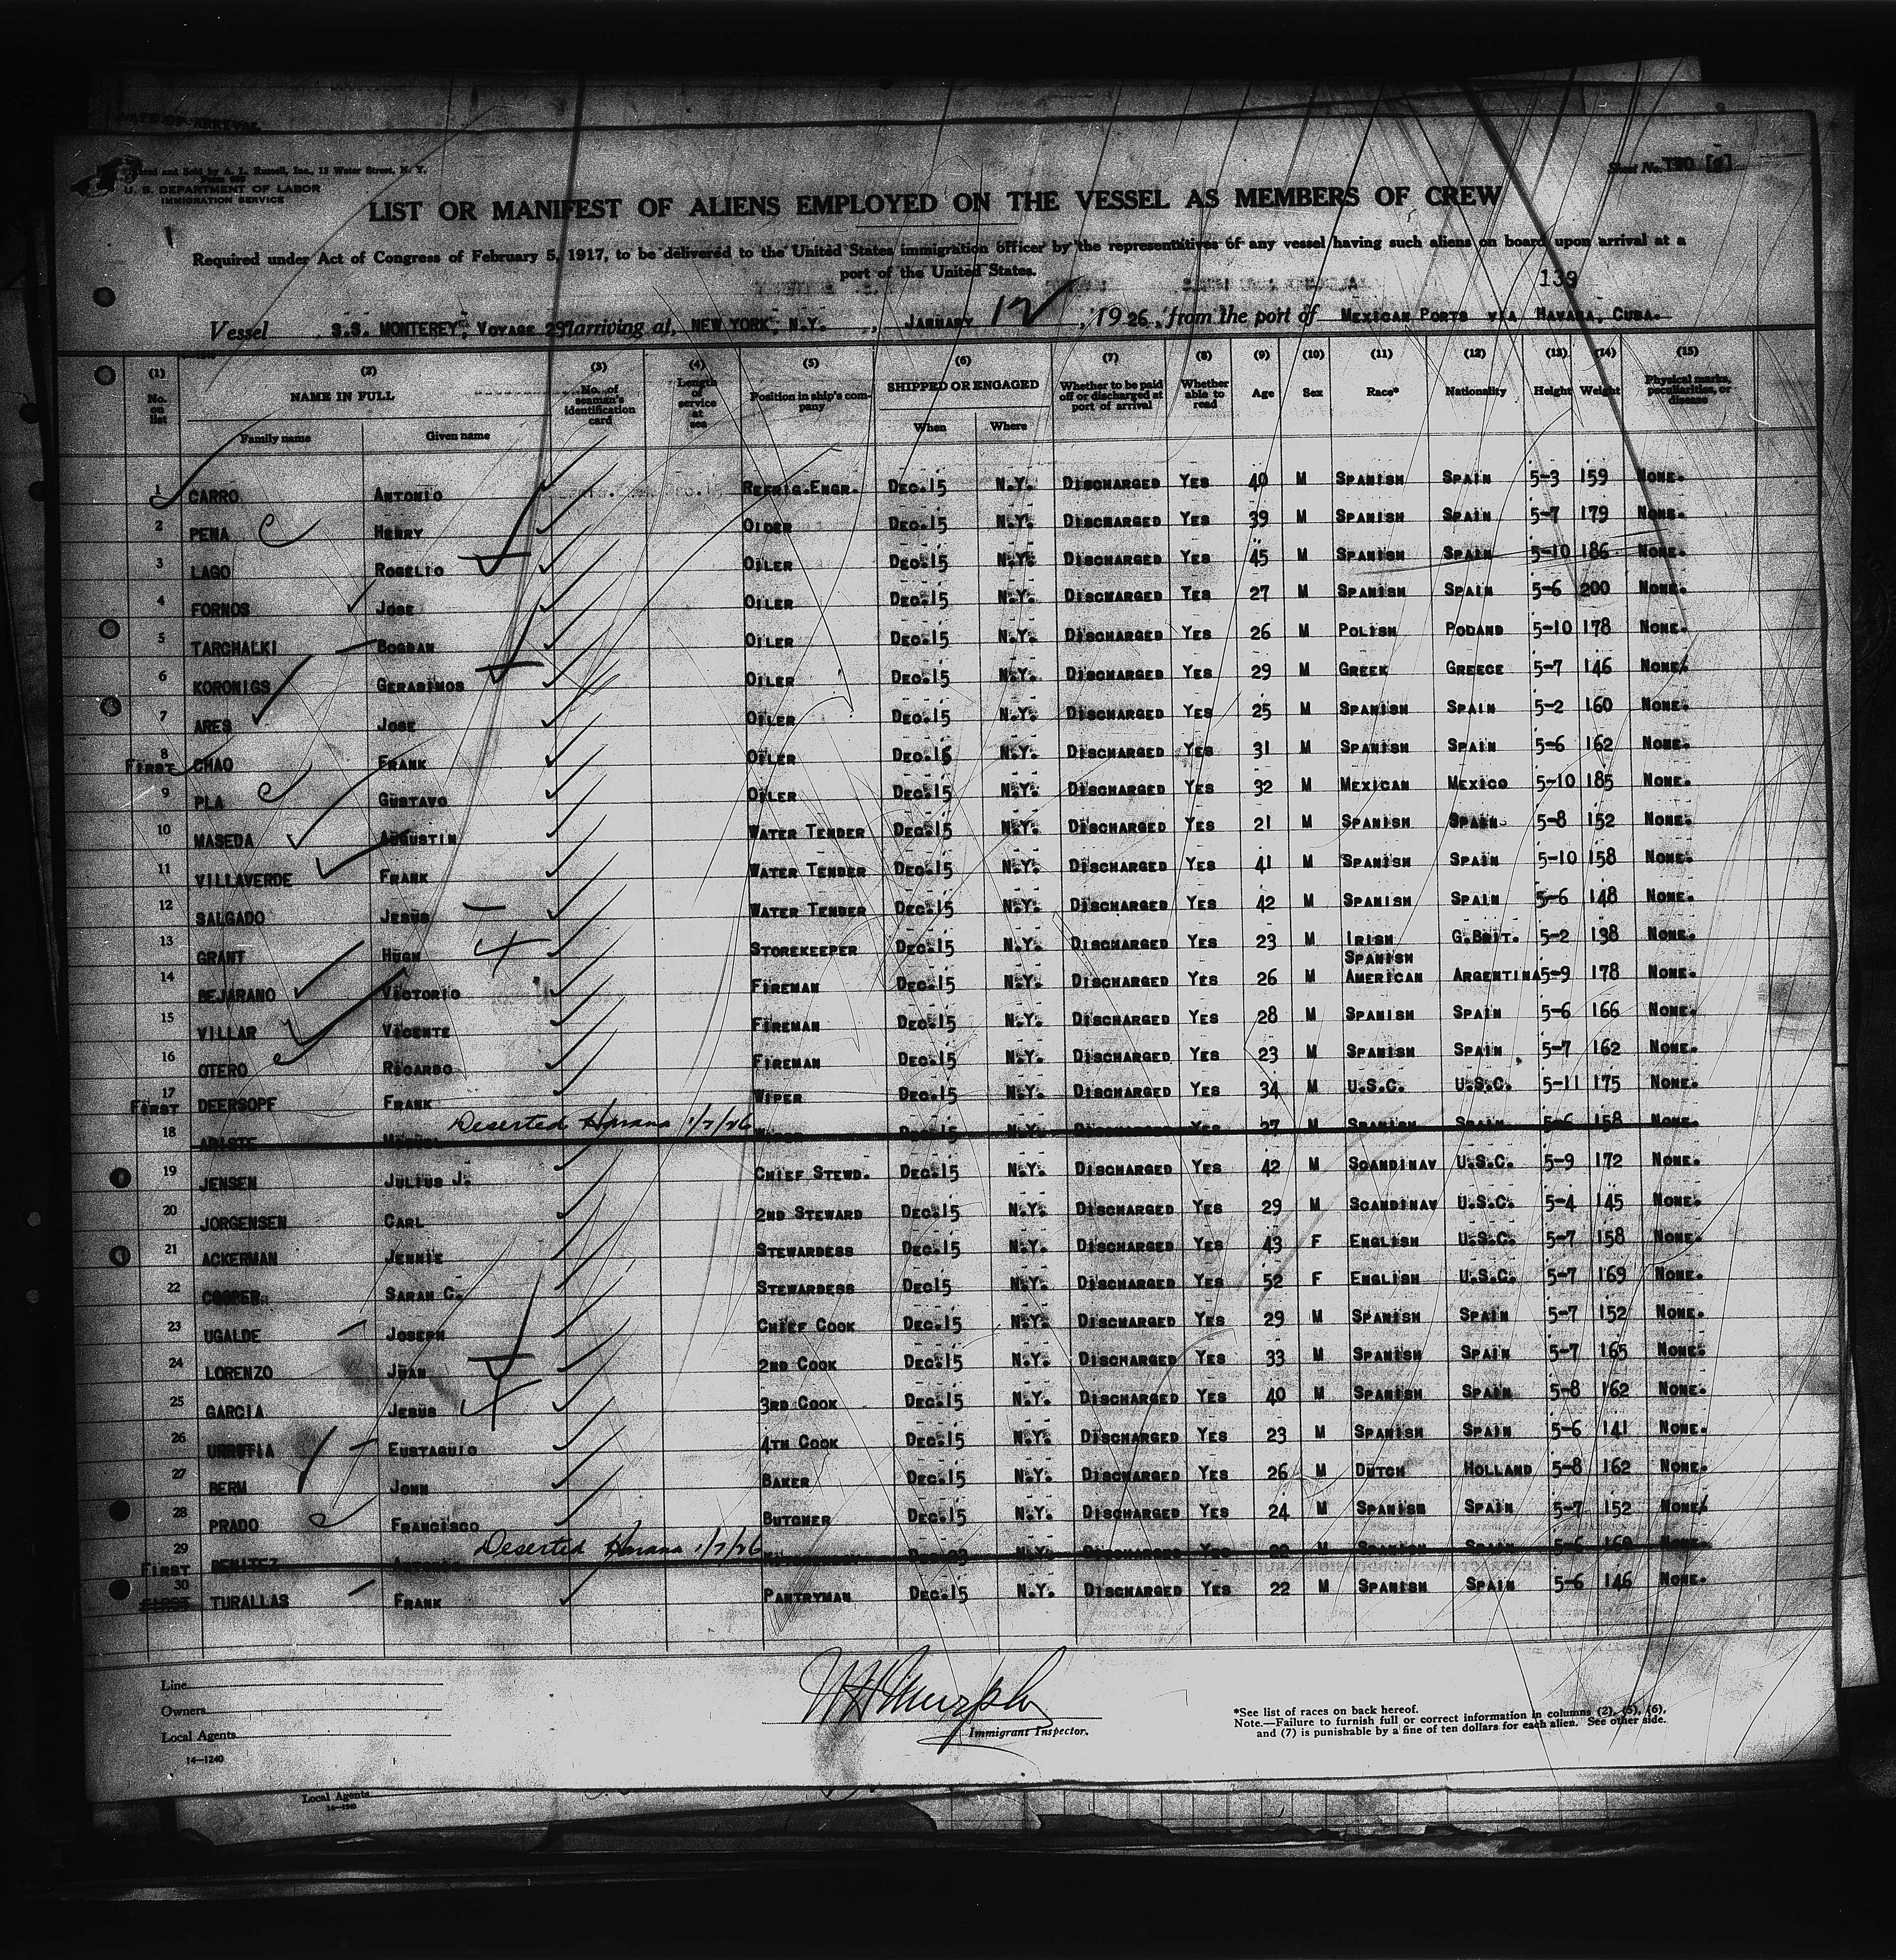 DATE OF ARRIVAL
Printed and Sold by A. L. Russell, Inc., 15 Water Street, N. Y.
U. S. DEPARTMENT OF LABOR
IMMIGRATION SERVICE
Sheet No. TWO [2]
LIST OR MANIFEST OF ALIENS EMPLOYED ON THE VESSEL AS MEMBERS OF CREW
Required under Act of Congress of February 5, 1917, to be delivered to the United States immigration officer by the representatives of any vessel having such aliens on board upon arrival at a
port of the United States.
139
Vessel S.S. MONTEREY, VOYAGE 297 arriving at, NEW YORK, N.Y., JANUARY 12, 1926, from the port of MEXICAN PORTS VIA HAVANA, CUBA.
(1) (2) (3) (4) (5) (6) (7) (8) (9) (10) (11) (12) (13) (14) (15)
No. on list NAME IN FULL Family name Given name No. of seaman's identification card Length of service at sea Position in ship's company SHIPPED OR ENGAGED When Where Whether to be paid off or discharged at port of arrival Whether able to read Age Sex Race* Nationality Height Weight Physical marks, peculiarities, or disease
1 CARRO ANTONIO REFRIG.ENGR. DEC.15 N.Y. DISCHARGED YES 40 M SPANISH SPAIN 5-3 159 NONE.
2 PENA HENRY OILER DEC.15 N.Y. DISCHARGED YES 39 M SPANISH SPAIN 5-7 179 NONE.
3 LAGO ROGELIO OILER DEC.15 N.Y. DISCHARGED YES 45 M SPANISH SPAIN 5-10 186 NONE.
4 FORNOS JOSE OILER DEC.15 N.Y. DISCHARGED YES 27 M SPANISH SPAIN 5-6 200 NONE.
5 TARCHALKI BOGDAN OILER DEC.15 N.Y. DISCHARGED YES 26 M POLISH POLAND 5-10 178 NONE.
6 KORONIGS GERASIMOS OILER DEC.15 N.Y. DISCHARGED YES 29 M GREEK GREECE 5-7 146 NONE.
7 ARES JOSE OILER DEC.15 N.Y. DISCHARGED YES 25 M SPANISH SPAIN 5-2 160 NONE.
8 FIRST CHAO FRANK OILER DEC.16 N.Y. DISCHARGED YES 31 M SPANISH SPAIN 5-6 162 NONE.
9 PLA GUSTAVO OILER DEC.15 N.Y. DISCHARGED YES 32 M MEXICAN MEXICO 5-10 185 NONE.
10 MASEDA AUGUSTIN WATER TENDER DEC.15 N.Y. DISCHARGED YES 21 M SPANISH SPAIN 5-8 152 NONE.
11 VILLAVERDE FRANK WATER TENDER DEC.15 N.Y. DISCHARGED YES 41 M SPANISH SPAIN 5-10 158 NONE.
12 SALGADO JESUS WATER TENDER DEC.15 N.Y. DISCHARGED YES 42 M SPANISH SPAIN 5-6 148 NONE.
13 GRANT HUGH STOREKEEPER DEC.15 N.Y. DISCHARGED YES 23 M IRISH G.BRIT. 5-2 138 NONE.
14 BEJARANO VICTORIO FIREMAN DEC.15 N.Y. DISCHARGED YES 26 M SPANISH AMERICAN ARGENTINA 5-9 178 NONE.
15 VILLAR VICENTE FIREMAN DEC.15 N.Y. DISCHARGED YES 28 M SPANISH SPAIN 5-6 166 NONE.
16 OTERO RICARDO FIREMAN DEC.15 N.Y. DISCHARGED YES 23 M SPANISH SPAIN 5-7 162 NONE.
17 FIRST DEERSOPF FRANK WIPER DEC.15 N.Y. DISCHARGED YES 34 M U.S.C. U.S.C. 5-11 175 NONE.
Deserted Havana 1/7/26
18 DEC.15 N.Y. DISCHARGED YES 27 M SPANISH SPAIN 5-6 158 NONE.
19 JENSEN JULIUS J. CHIEF STEWD. DEC.15 N.Y. DISCHARGED YES 42 M SCANDINAV U.S.C. 5-9 172 NONE.
20 JORGENSEN CARL 2ND STEWARD DEC.15 N.Y. DISCHARGED YES 29 M SCANDINAV U.S.C. 5-4 145 NONE.
21 ACKERMAN JENNIE STEWARDESS DEC.15 N.Y. DISCHARGED YES 43 F ENGLISH U.S.C. 5-7 158 NONE.
22 COOPER SARAH C. STEWARDESS DEC15 N.Y. DISCHARGED YES 52 F ENGLISH U.S.C. 5-7 169 NONE.
23 UGALDE JOSEPH CHIEF COOK DEC.15 N.Y. DISCHARGED YES 29 M SPANISH SPAIN 5-7 152 NONE.
24 LORENZO JUAN 2ND COOK DEC.15 N.Y. DISCHARGED YES 33 M SPANISH SPAIN 5-7 165 NONE.
25 GARCIA JESUS 3RD COOK DEC.15 N.Y. DISCHARGED YES 40 M SPANISH SPAIN 5-8 162 NONE.
26 URRUTIA EUSTAQUIO 4TH COOK DEC.15 N.Y. DISCHARGED YES 23 M SPANISH SPAIN 5-6 141 NONE.
27 BERM JOHN BAKER DEC.15 N.Y. DISCHARGED YES 26 M DUTCH HOLLAND 5-8 162 NONE.
28 PRADO FRANCISCO BUTCHER DEC.15 N.Y. DISCHARGED YES 24 M SPANISH SPAIN 5-7 152 NONE.
Deserted Havana 1/7/26
29 FIRST BENITEZ ANTONIO N.Y. DISCHARGED YES 22 M SPANISH SPAIN 5-6 160 NONE.
30 FIRST TURALLAS FRANK PANTRYMAN DEC.15 N.Y. DISCHARGED YES 22 M SPANISH SPAIN 5-6 146 NONE.
Line
Owners
Local Agents
14-1240
Immigrant Inspector.
*See list of races on back hereof.
Note.—Failure to furnish full or correct information in columns (2), (5), (6),
and (7) is punishable by a fine of ten dollars for each alien. See other side.
Local Agents
14-1240